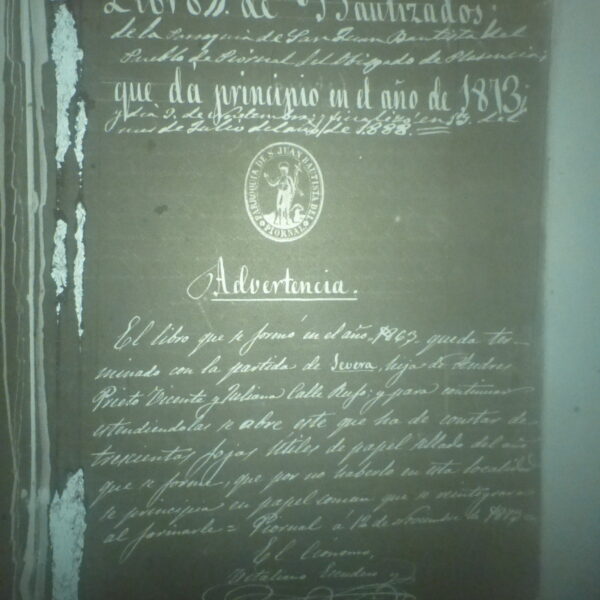 Libro 11. de Bautizados:
de la Parroquia de San Juan Bautista del
Pueblo de Piornal del Obispado de Plasencia;
que da principio en el año de 1873;
y dia 9. de Noviembre; finalizó en 13 del
mes de Julio del año de 1888.
PARROQUIA DE S. JUAN BAUTISTA DEL PIORNAL
Advertencia.
El libro que se formó en el año 1863 queda ter-
minado con la partida de Severa, hija de Andres
Prieto Vicente y Juliana Calle Rufo: y para continuar
estendiendolas se abre este que ha de constar de
trescientas fojas útiles de papel sellado del año
que se forme, que por no haberlo en esta localidad
se principia en papel comun que se reintegrara
al formarle = Piornal á 12 de Noviembre de 1873 =
El Ecónomo,
Vitaliano Escudero y